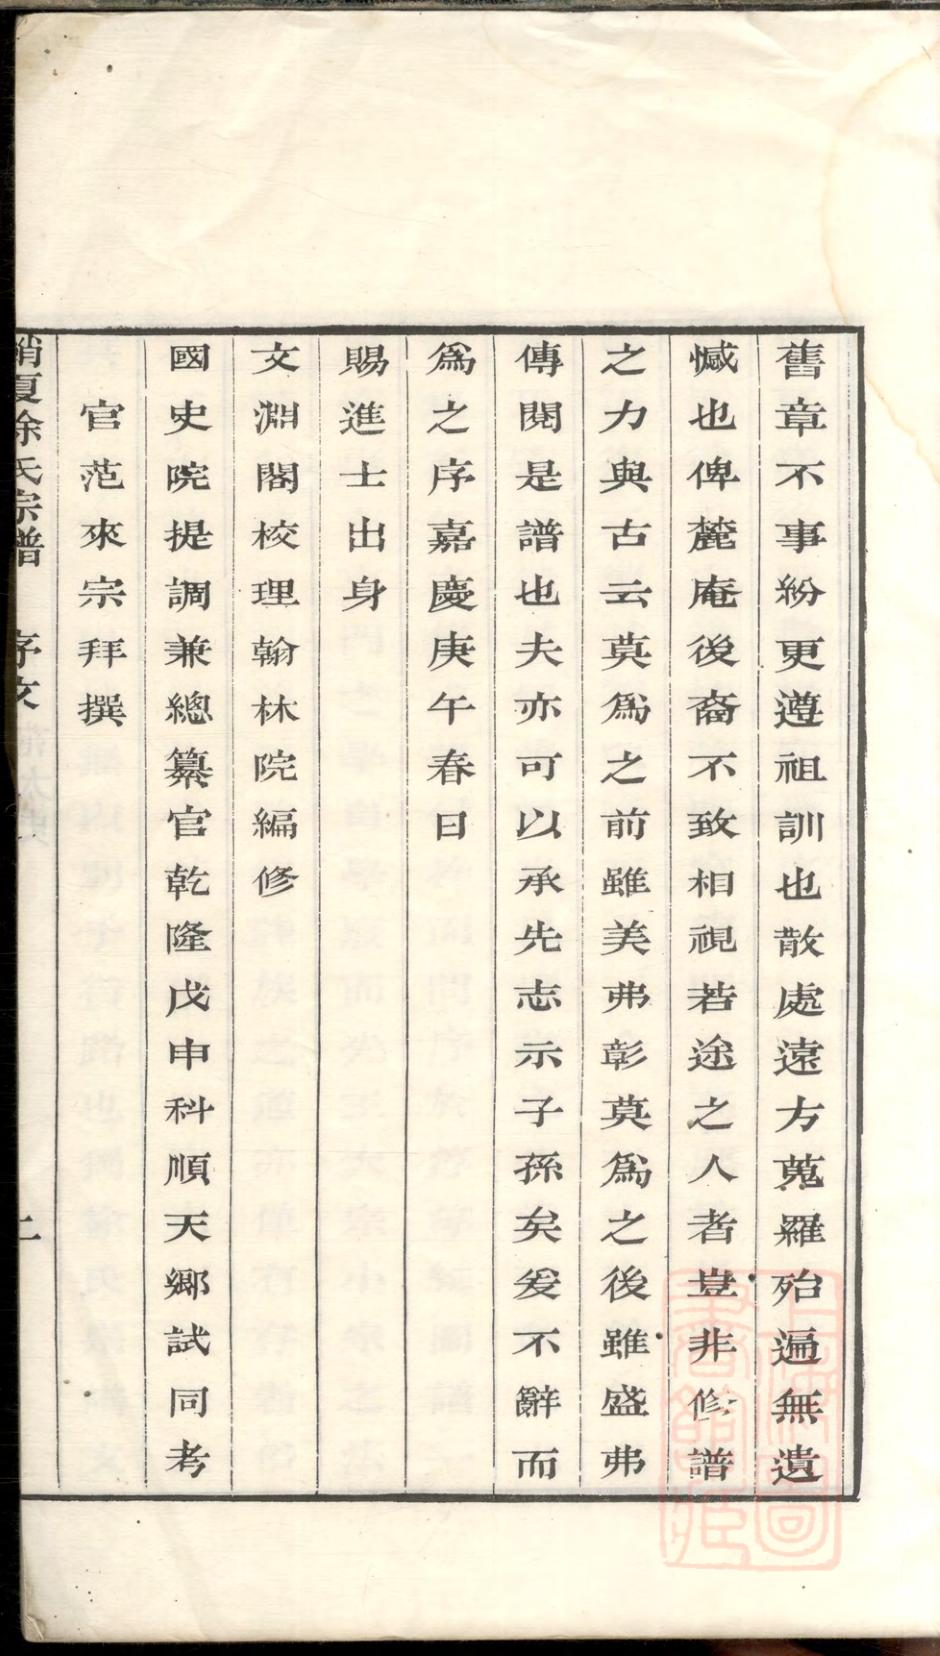 舊章不事紛更遵祖訓也散處遠方蒐羅殆遍無遺
憾也俾麓庵後裔不致相視若途之人者豈非修譜
之力與古云莫為之前雖美弗彰莫為之後雖盛弗
傳閱是譜也夫亦可以承先志示子孫矣爰不辭而
為之序嘉慶庚午春日
賜進士出身
文淵閣校理翰林院編修
國史院提調兼總纂官乾隆戊申科順天鄉試同考
官范來宗拜撰
夏徐氏宗譜 序文
上海圖書館藏